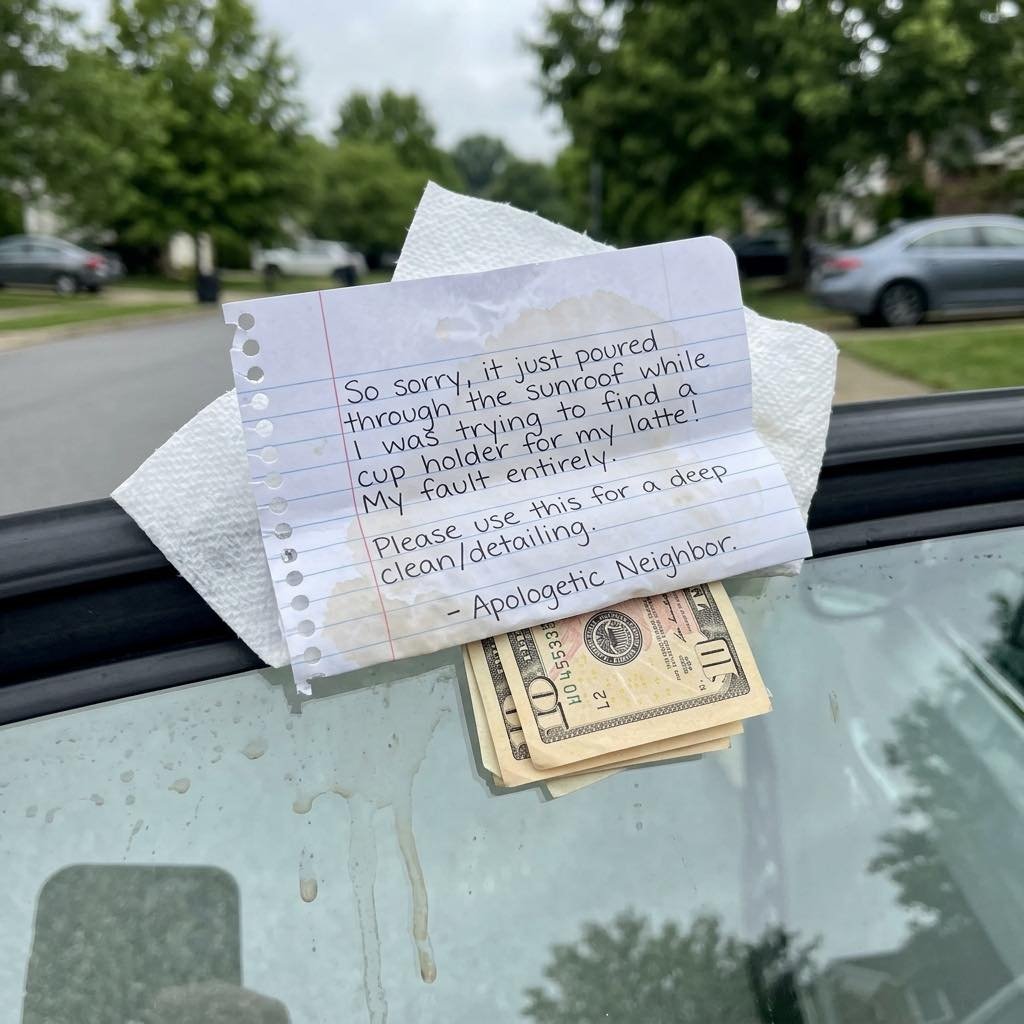 So sorry, it just poured
through the sunroof while
I was trying to find a
cup holder for my latte!
My fault entirely.
Please use this for a deep
clean/detailing.
- Apologetic Neighbor.
10
10
L2